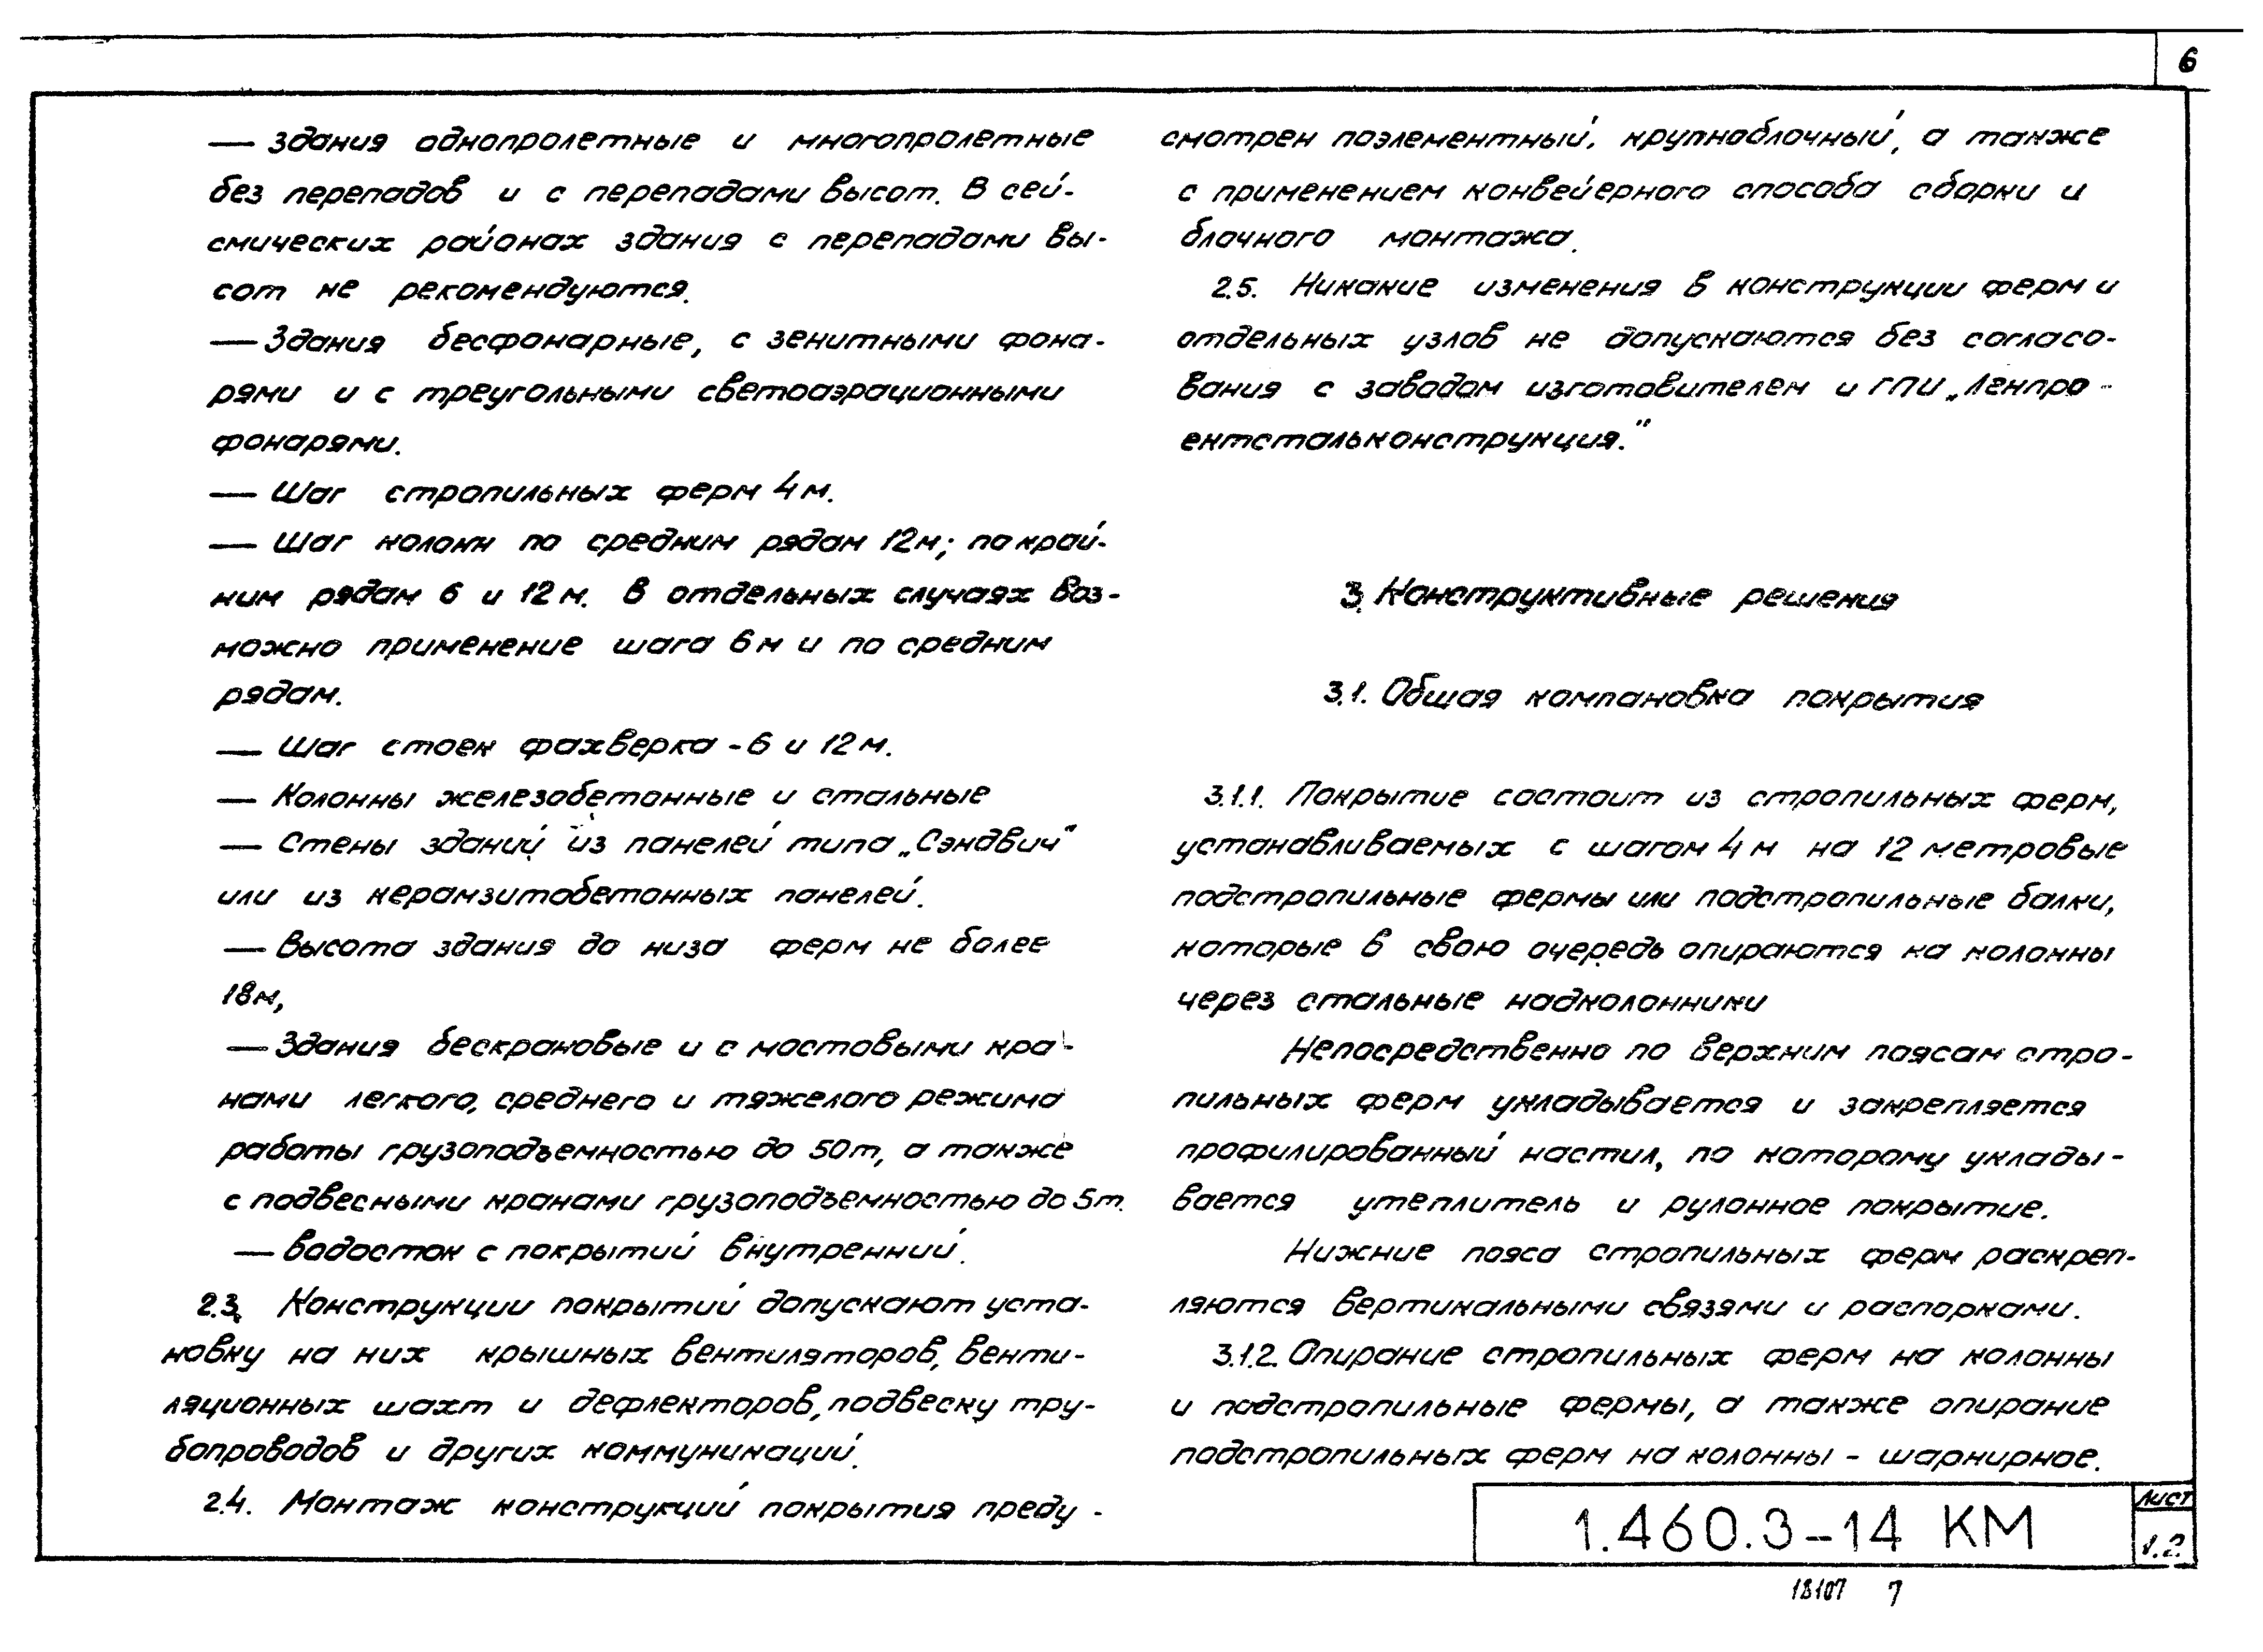 6
— Здания однопролетные и многопролетные
без перепадов и с перепадами высот. В сей-
смических районах здания с перепадами вы-
сот не рекомендуются.
— Здания бесфонарные, с зенитными фона-
рями и с треугольными светоаэрационными
фонарями.
— Шаг стропильных ферм 4м.
— Шаг колонн по средним рядам 12м; по край-
ним рядам 6 и 12м. В отдельных случаях воз-
можно применение шага 6м и по средним
рядам.
— Шаг стоек фахверка - 6 и 12м.
— Колонны железобетонные и стальные
— Стены зданий из панелей типа „Сэндвич"
или из керамзитобетонных панелей.
— Высота здания до низа ферм не более
18м,
— Здания бескрановые и с мостовыми кра-
нами легкого, среднего и тяжелого режима
работы грузоподъемностью до 50т, а также
с подвесными кранами грузоподъемностью до 5т.
— Водосток с покрытий внутренний.
2.3. Конструкции покрытий допускают уста-
новку на них крышных вентиляторов, венти-
ляционных шахт и дефлекторов, подвеску тру-
бопроводов и других коммуникаций.
2.4. Монтаж конструкций покрытия преду-
смотрен поэлементный, крупноблочный, а также
с применением конвейерного способа сборки и
блочного монтажа.
2.5. Никакие изменения в конструкции ферм и
отдельных узлов не допускаются без согласо-
вания с заводом изготовителем и ГПИ „Ленпро-
ектстальконструкция."
3. Конструктивные решения
3.1. Общая компановка покрытия
3.1.1. Покрытие состоит из стропильных ферм,
устанавливаемых с шагом 4м на 12 метровые
подстропильные фермы или подстропильные балки,
которые в свою очередь опираются на колонны
через стальные надколонники
Непосредственно по верхним поясам стро-
пильных ферм укладывается и закрепляется
профилированный настил, по которому уклады-
вается утеплитель и рулонное покрытие.
Нижние пояса стропильных ферм раскреп-
ляются вертикальными связями и распорками.
3.1.2. Опирание стропильных ферм на колонны
и подстропильные фермы, а также опирание
подстропильных ферм на колонны - шарнирное.
1.460.3-14 КМ
Лист
1.2.
18107 7